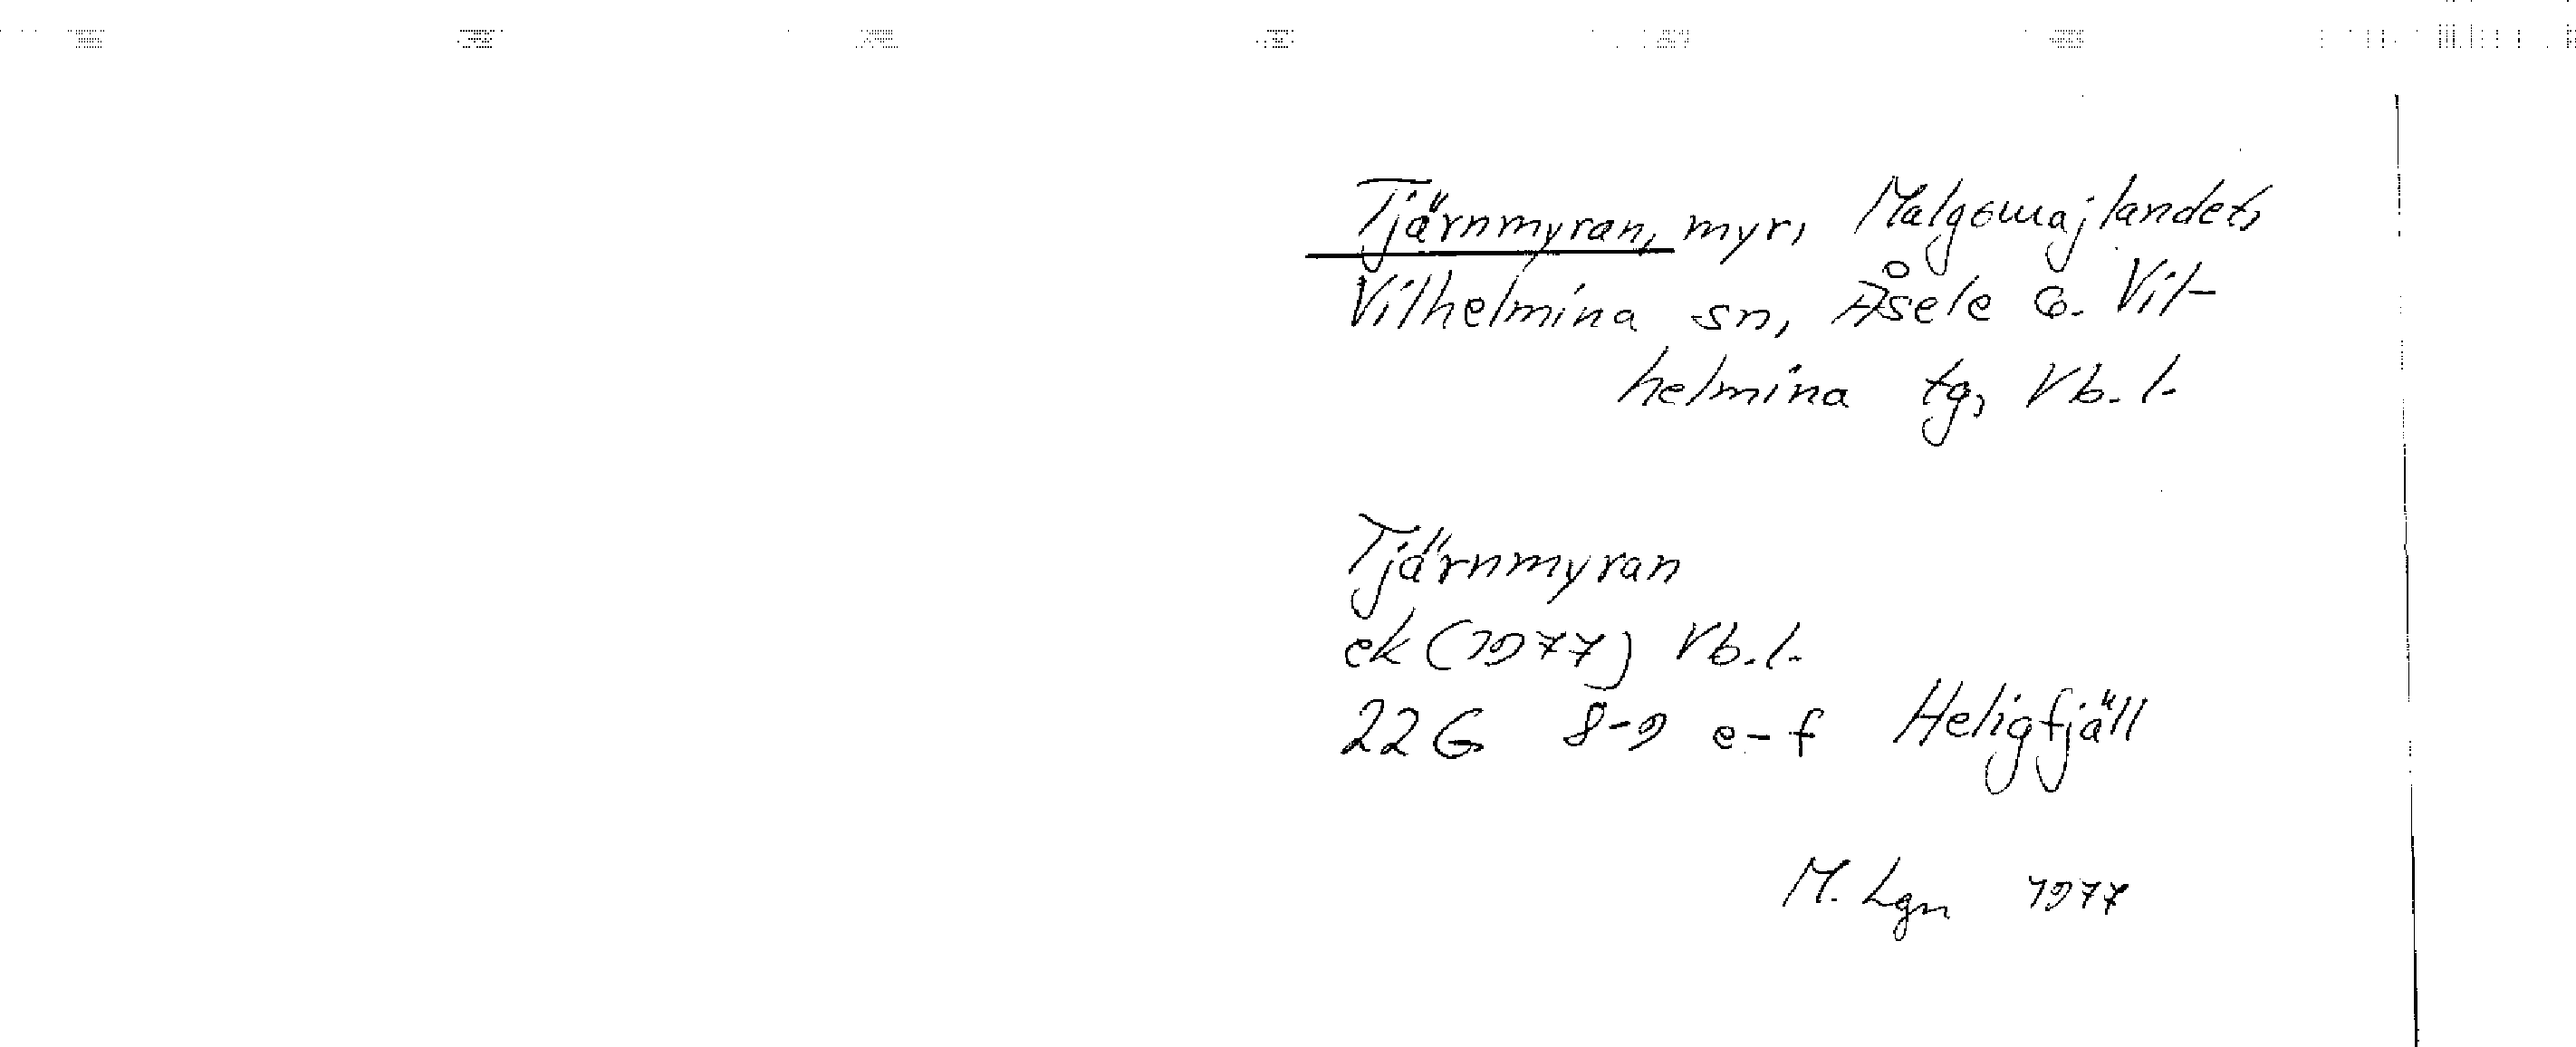 Tjärnmyran, myr, Malgomajlandet,
Vilhelmina sn, Åsele o. Vil-
helmina tg, Vb. l.
Tjärnmyran
ek (1977) Vb. l.
22 G 8-9 e-f Heligfjäll
M. Lgn 1977